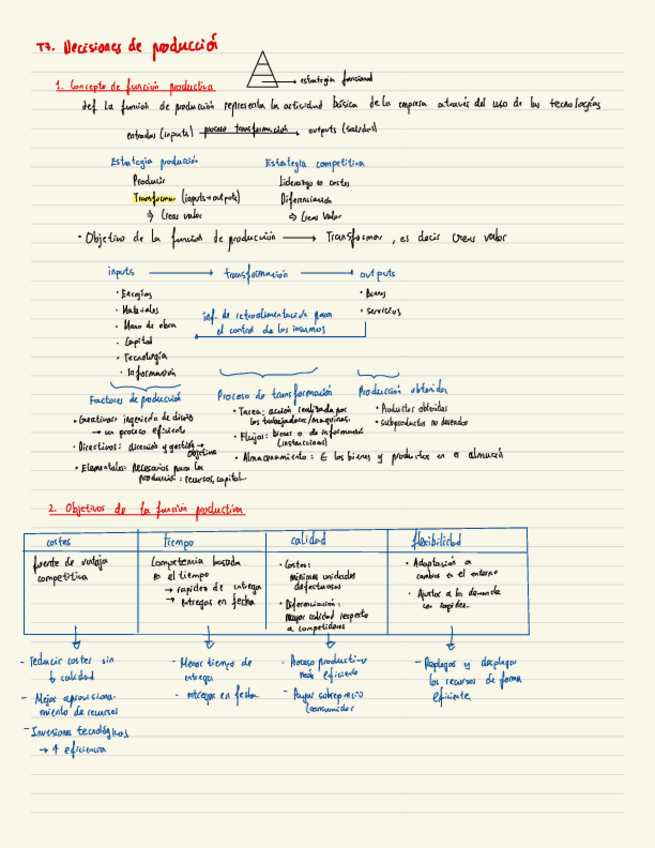 T7. Decisiones de producción
1. Concepto de función productiva
estrategia funcional
def La función de producción representa la actividad básica de la empresa a través del uso de las tecnologías
entradas (inputs) proceso transformación outputs (salidas)
Estrategia producción
Producir
Transformar (inputs→outputs)
⇒ Crear valor
Estrategia competitiva
Liderazgo en costes
Diferenciación
⇒ Crear valor
• Objetivo de la función de producción → Transformar, es decir crear valor
inputs → transformación → outputs
• Energías
• Materiales
• Mano de obra
• Capital
• Tecnología
• Información
inf. de retroalimentación para
el control de los insumos
• Bienes
• servicios
Factores de producción
• Creativos: ingeniería de diseño
→ un proceso eficiente
• Directivos: dirección y gestión →
objetivos
• Elementales: Necesarios para la
producción: recursos, capital
Proceso de transformación
• Tarea: acción realizada por
los trabajadores/maquinas.
• Flujos: bienes o de información
(instrucciones)
• Almacenamiento: E los bienes y productos en el almacén
Producción obtenida
• Productos obtenidos
• subproductos no deseados
2. Objetivos de la función productiva
costes
fuente de ventaja
competitiva
tiempo
Competencia basada
en el tiempo
→ rapidez de entrega
→ entregas en fecha
calidad
• Costes:
mínimas unidades
defectuosas
• Diferenciación:
Mayor calidad respecto
a competidores
flexibilidad
• Adaptación a
cambios en el entorno
• Ajustar a la demanda
con rapidez.
- Reducir costes sin
↓ calidad
- Mejor aprovisiona-
miento de recursos
- Inversiones tecnológicas
→ ↑ eficiencia
- Menor tiempo de
entrega
- entregas en fecha
- Proceso productivo
más eficiente
- Pagar sobreprecio
consumidor
- Replegar y desplegar
los recursos de forma
eficiente